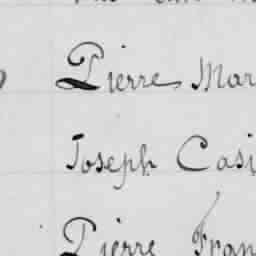 Pierre Mar
Joseph Casi
Pierre Fran